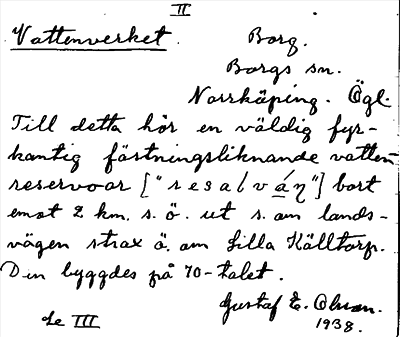 II
Vattenverket.
Borg.
Borgs sn.
Norrköping. Ögl.
Till detta hör en väldig fyr-
kantig fästningsliknande vatten-
reservoar ["resalváŋ"] bort
emot 2 km. s. ö. ut s. om lands-
vägen strax ö. om Lilla Källtorp.
Den byggdes på 70-talet.
Gustaf E. Olson.
1938.
Se III